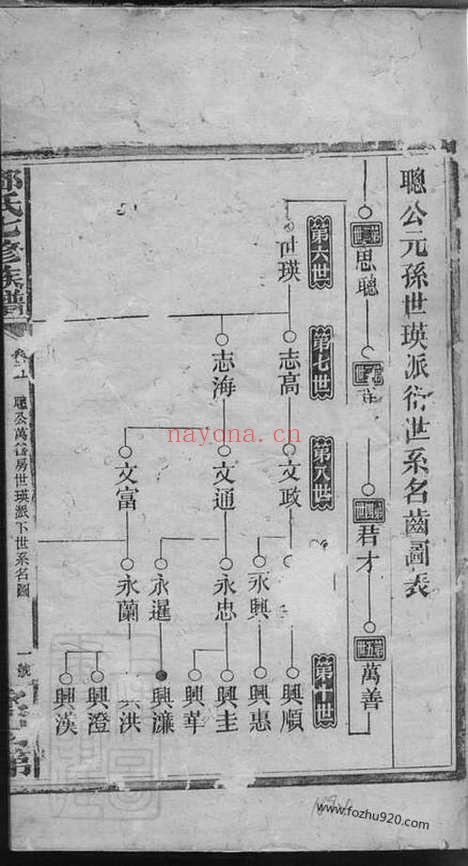 聰公元孫世瑛派衍世系名齒圖表
思聰
君才
萬善
第六世
第七世
第八世
第十世
世瑛
志高
文政
永興
興順
興惠
志海
文通
永忠
興圭
興華
永暹
興濂
文富
永蘭
洪
興澄
興漢
氏七修族譜
聰公萬善房世瑛派下世系名圖
一號
nayona.cn
www.fozhu920.com